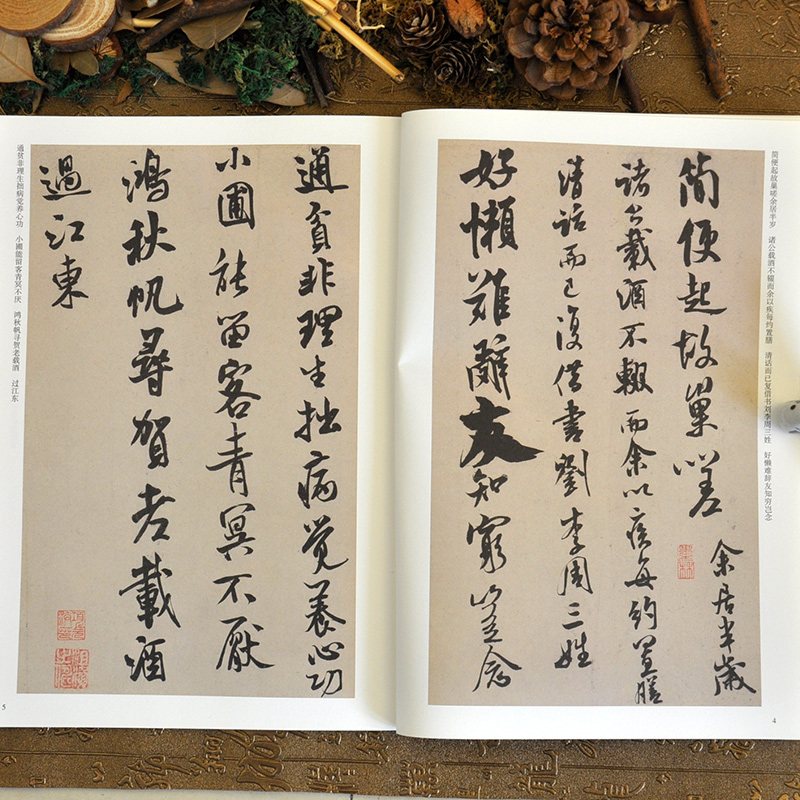 简便起故巢嗟余居半岁 诸公载酒不辍而余以疾每约置膳 清话而已复借书刘李周三姓 好懒难辞友知穷岂念
簡便起故巢嗟余居半歲
諸公載酒不輟而余以疾每約置膳
清話而已復借書劉李周三姓
好懶難辭友知窮豈念
4
通貧非理生拙病覺養心功
小圃能留客青冥不厭
鴻秋帆尋賀老載酒
過江東
通贫非理生拙病觉养心功 小圃能留客青冥不厌 鸿秋帆寻贺老载酒 过江东
5